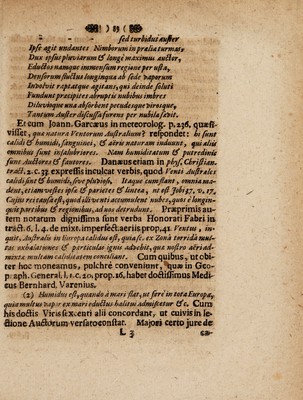 ) 85 (
sed turbidus auster
Ipse agit undantes Nimborum in prælia turmas,
Dux ipsus pluviarum & longè maximus auctor,
Eductos namque immensum regione per usta,
Densorum fluctus longinqua ab sede vaporum
Involvit raptatque agitans, qui deinde soluti
Fundunt præcipites abruptis nubibus imbres
Diluvioque una absorbent pecudesque virosque,
Tantum Auster discussa furens per nubila sævit.
Et cum Joann. Garcæus in meteorolog. p. 236. quæsi-
visset, quæ natura Ventorum Australium? respondet: hi sunt
calidi & humidi, sanguinei, & aëris naturam induunt, qui aliis
omnibus sunt insalubriores. Nam humiditatum & putredinis
sunt Auctores & fautores. Danæus etiam in phys. Christian.
tract. 2. c. 33. expressis inculcat verbis, quod Venti Australes
calidi sint & humidi, sive pluviosi, Itaque cum flant, omnia ma-
dent, etiam vestes ipsæ & parietes & lintea, ut est Job 37. v. 17.
Cujus res causa est, quod illi venti accumulent nubes, quas è longin-
quis partibus & regionibus, ad nos detrudunt. Præprimis au-
tem notatum dignissima sunt verba Honorati Fabri in
tract. 6. l. 4. de mixt. imperfect. aëriis prop. 41. Ventus, in-
quit, Australis in Europa calidus est, quia sc. ex Zona torrida mul-
tas exhalationes & particulas ignis advehit, quæ nostro aëri ad-
mixta multam caliditatem conciliant. Cum quibus, ut obi-
ter hoc moneamus, pulchrè conveniunt, quæ in Geo-
graph. General. l. 1. c. 20. prop. 16. habet doctissimus Medi-
cus Bernhard. Varenius.
(2) Humidus est, quando à mari flat, ut ferè in tota Europa,
quia multus vapor ex mari eductus halitui admiscetur & c. Cum
his doctis Viris sexcenti alii concordant, ut cuivis in le-
ctione Auctorum versato constat. Majori certo jure de
L 3 ca-